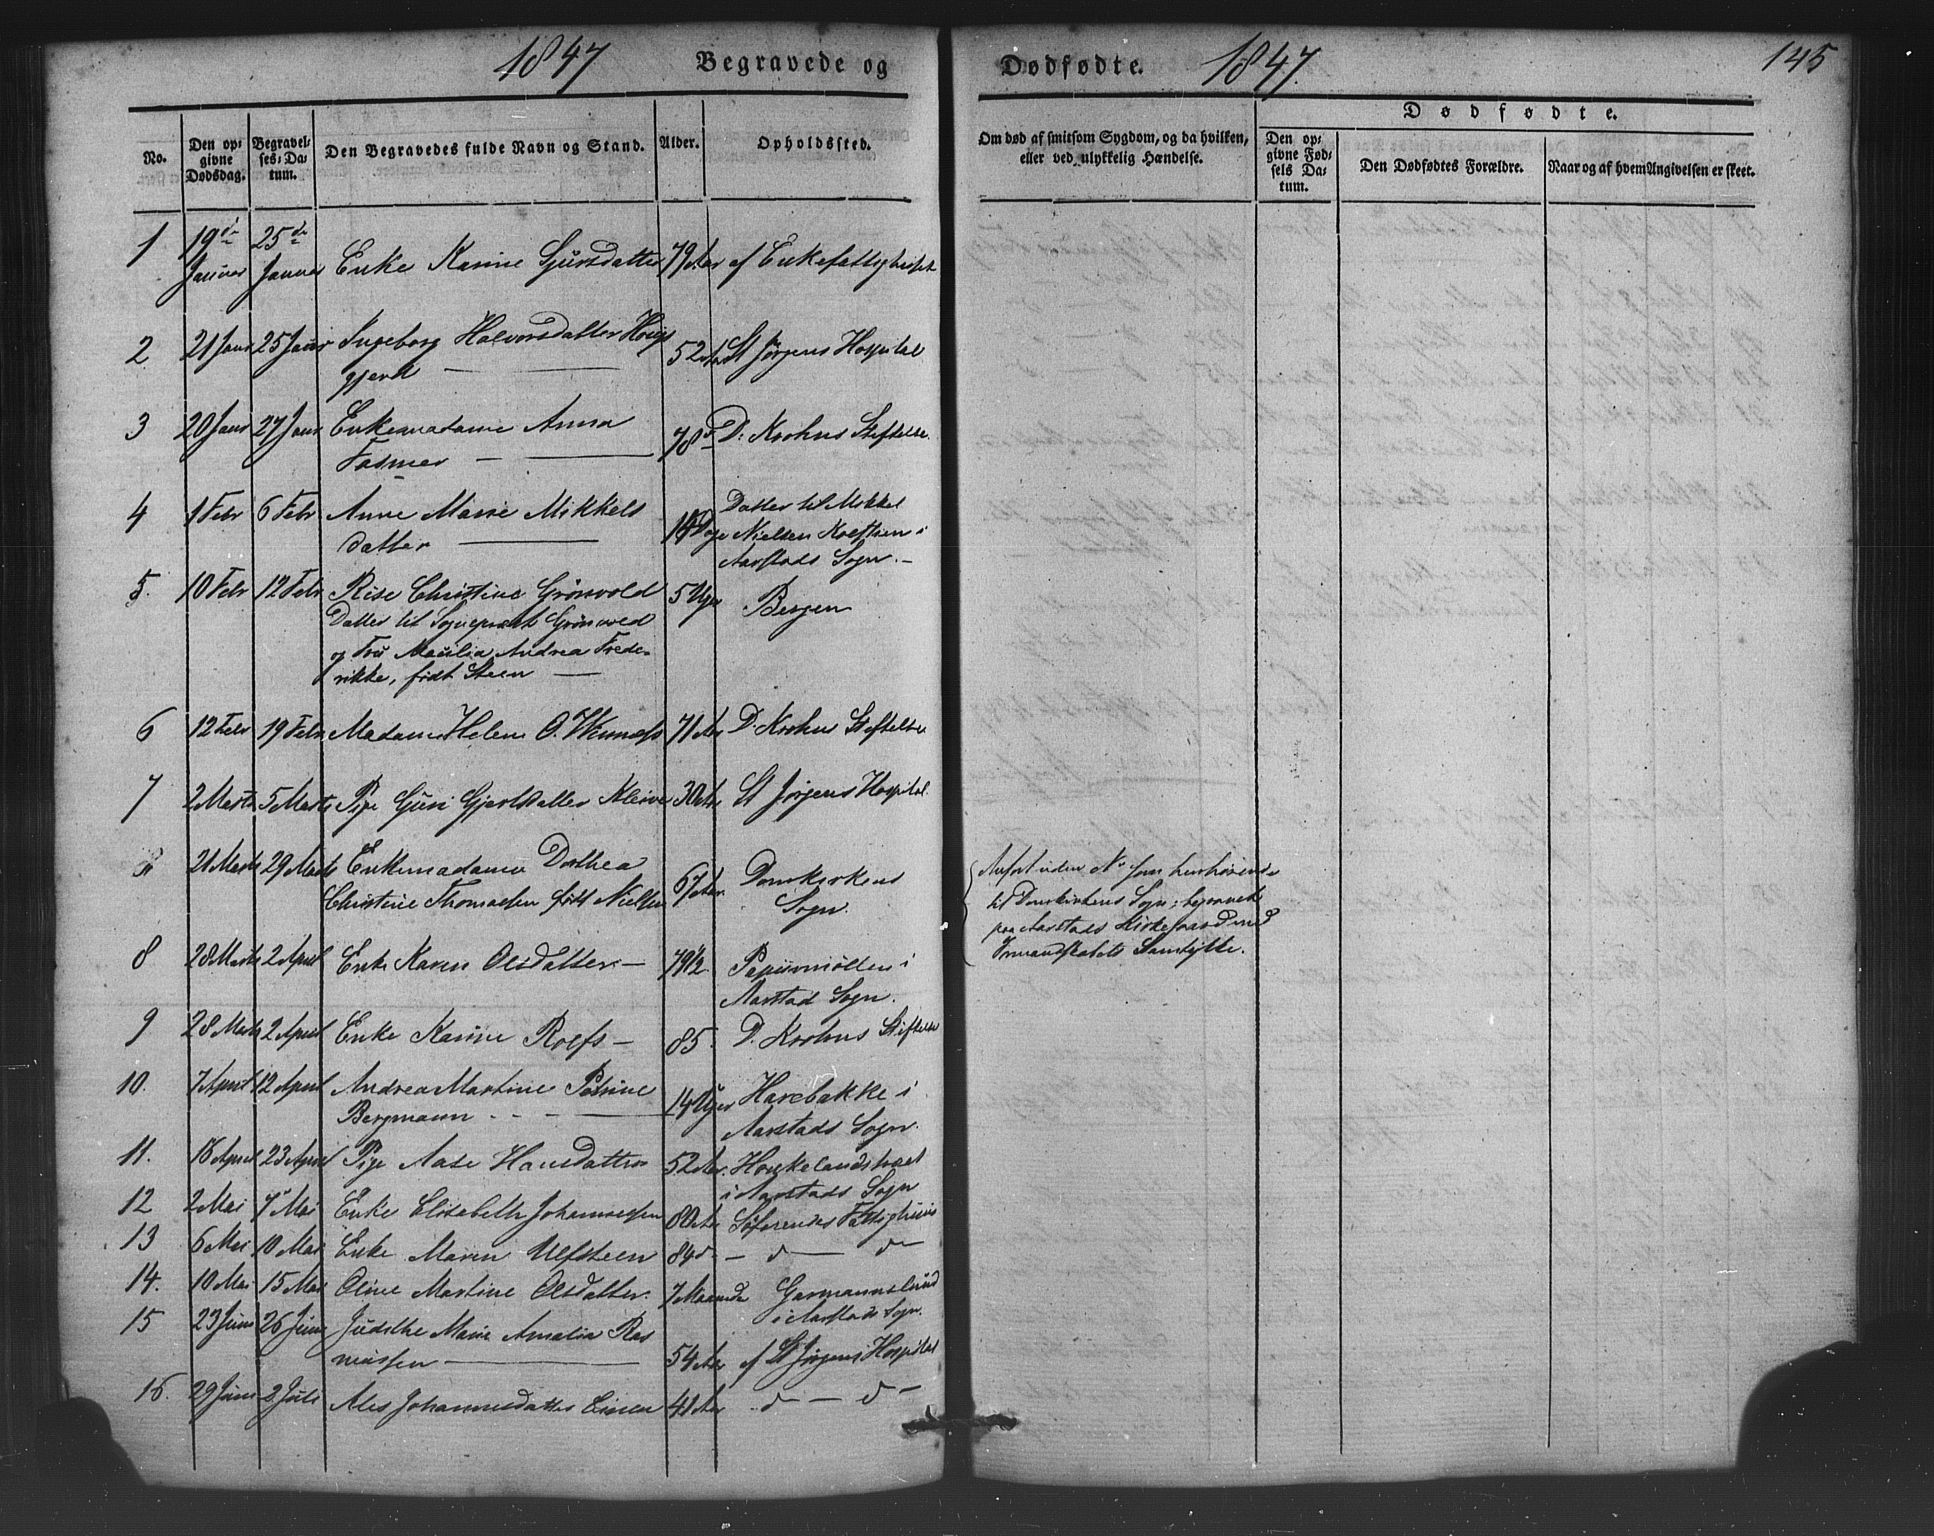 1847 Begravede og Dødfødte. 1847. 145
No. Den opgivne Dødsdag. Begravelses-Datum. Den Begravedes fulde Navn og Stand. Alder. Opholdssted.
Om død af smitsom Sygdom, og da hvilken, eller ved ulykkelig Hændelse.
Dødfødte.
Den opgivne Fødsels Datum. Den Dødfødtes Forældre. Naar og af hvem Angivelsen er skeet.
1 19de Januar 25de Januar Enke Karine Sjursdatter 79 Aar af Enkefattighuset
2 21 Janr 25 Janr Ingeborg Halvorsdatter
gjerd — 52 Aar St Jørgens Hospital
3 20 Janr 27 Janr Enkemadame Anna
Fasmer — 78 d D. Krohns Stiftelse
4 1 Febr 6 Febr Anne Marie Mikkels
datter — 14 Dage Datter til Mikkel
Nielsen i
Aarstads Sogn. —
5. 10 Febr 12 Febr Rise Christine Grønvold 5 Uger Bergen
Datter til Sognepræst Grønvold
og Fru Andrea Frede-
rikke, født Steen —
6 12 Febr 19 Febr Madame Helene O. 71 Aar D. Krohns Stiftelse
7 2 Marts 5 Marts Pige Guri Gjertsdatter 30 Aar St Jørgens Hospital.
21 Marts 29 Marts Enkemadame Dorthea
Christine Thomassen født Nielsen 67 Aar Domkirkens
Sogn.
Anført uden No som henhørende
til Domkirkens Sogn; begravet
paa Aarstads Kirkegaard med
Formandskabets Samtykke.
8 28 Marts 2 April Enke Karen Olsdatter — 79 1/2 Papirmøllen i
Aarstad Sogn.
9 28 Marts 2 April Enke Karine Rolfs — 85. D. Krohns Stiftelse
10. 7 April 12 April Andrea Martine Petrine
Bergmann — 14 Uger Harebakke i
Aarstads Sogn.
11. 18 April 23 April Pige Aase Hansdatter 52 Aar. Houkelandstræet
i Aarstads Sogn
12 2 Mai 7 Mai Enke Elisabeth Johannessen 80 Aar Søfarendes Fattighuus
13 6 Mai 10 Mai Enke Maren Ulfsteen 84 d — d — d —
14. 10 Mai 15 Mai Oline Martine Olsdatter. 7 Maaneder Garmannslund
i Aarstads Sogn.
15 23 Juni 26 Juni Judithe Marie Amalia Ras
mussen — 54 Aar af St Jørgens Hospital
16. 29 Juni 2 Juli Ales Johannesdatter 41 Aar d — d —